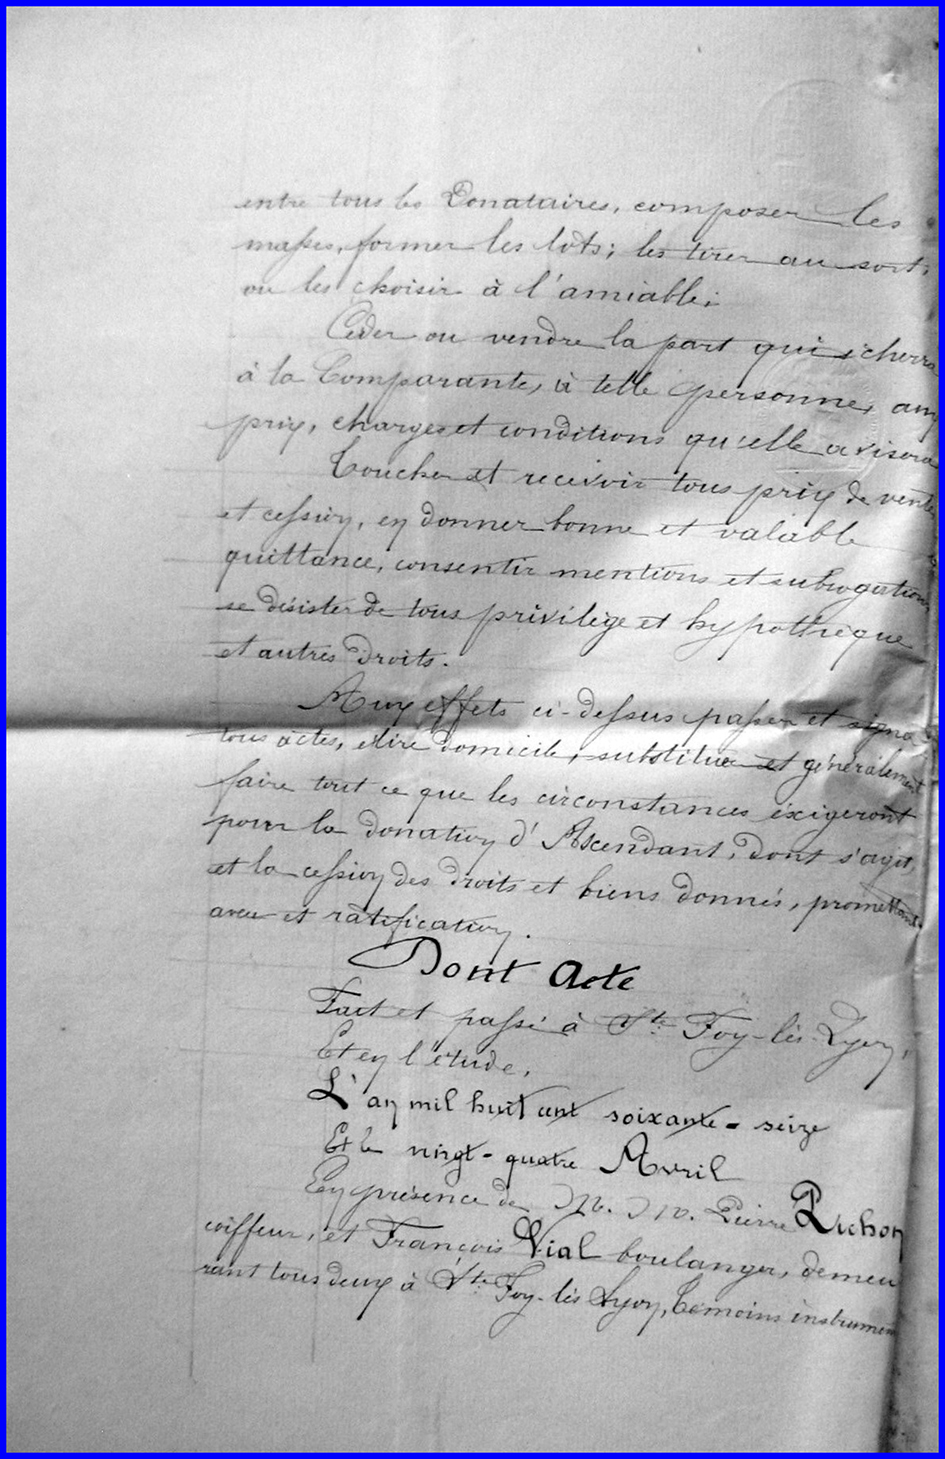 entre tous les Donataires, composer les
masses, former les lots; les tirer au sort,
ou les choisir à l'amiable;
Céder ou vendre la part qui écherra
à la Comparante, à telle personne, aux
prix, charges et conditions qu'elle avisera
Toucher et recevoir tous prix de vente
et cession, en donner bonne et valable
quittance, consentir mentions et subrogations
se désister de tous privilège et hypothèque
et autres droits.
Aux effets ci-dessus passer et signer
tous actes, élire domicile, substituer et généralement
faire tout ce que les circonstances éxigeront
pour la donation d'Ascendant, dont s'agit,
et la cession des droits et biens donnés, promettant
aveu et ratification.
Dont Acte
Fait et passé à Ste Foy-lès-Lyon,
Et en l'étude,
L'an mil huit cent soixante-seize
Et le vingt-quatre Avril
En présence de M. M. Pierre Pichon
coiffeur, et François Vial boulanger, demeu
rant tous deux à Ste Foy-lès Lyon, témoins instrumen